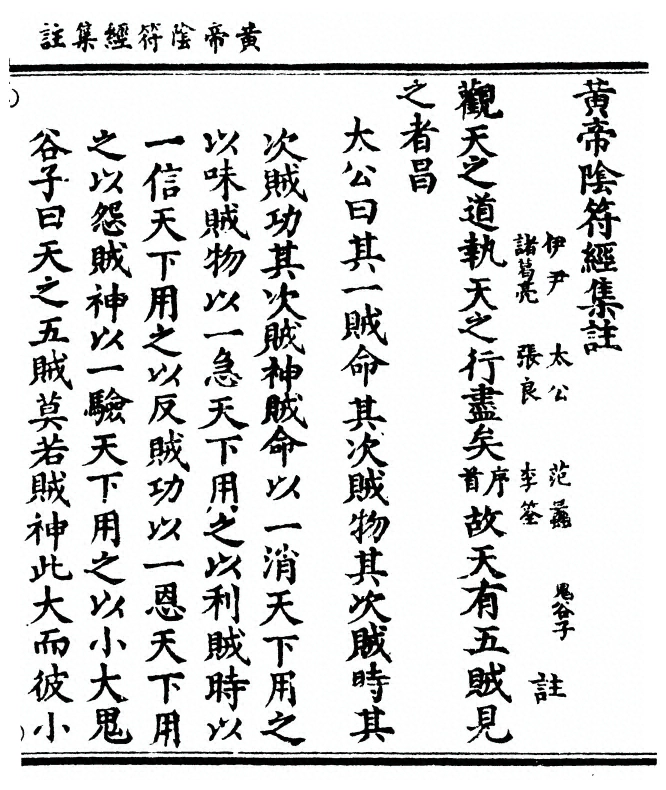 黃帝陰符經集註
黃帝陰符經集註
伊尹 太公 范蠡 鬼谷子
諸葛亮 張良 李筌 註
觀天之道執天之行盡矣序首故天有五賊見
之者昌
太公曰其一賊命其次賊物其次賊時其
次賊功其次賊神賊命以一消天下用之
以味賊物以一急天下用之以利賊時以
一信天下用之以反賊功以一恩天下用
之以怨賊神以一驗天下用之以小大鬼
谷子曰天之五賊莫若賊神此大而彼小